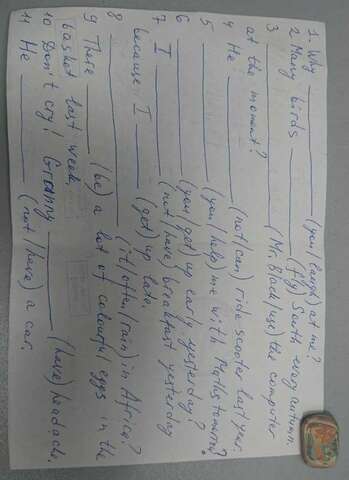 1 Why ______ (you/laugh) at me?
2 Many birds ______ (fly) South every autumn.
3 ______ (Mr. Black/use) the computer
at the moment?
4 He ______ (not/can) ride scooter last year.
5 ______ (you/help) me with Maths tomorrow?
6 ______ (you/get) up early yesterday?
7 I ______ (not/have) breakfast yesterday
because I ______ (get) up late.
8 ______ (it/often/rain) in Africa?
9 There ______ (be) a lot of colourful eggs in the
basket last week.
10 Don't cry! Granny ______ (have) headache.
11 He ______ (not/have) a car.